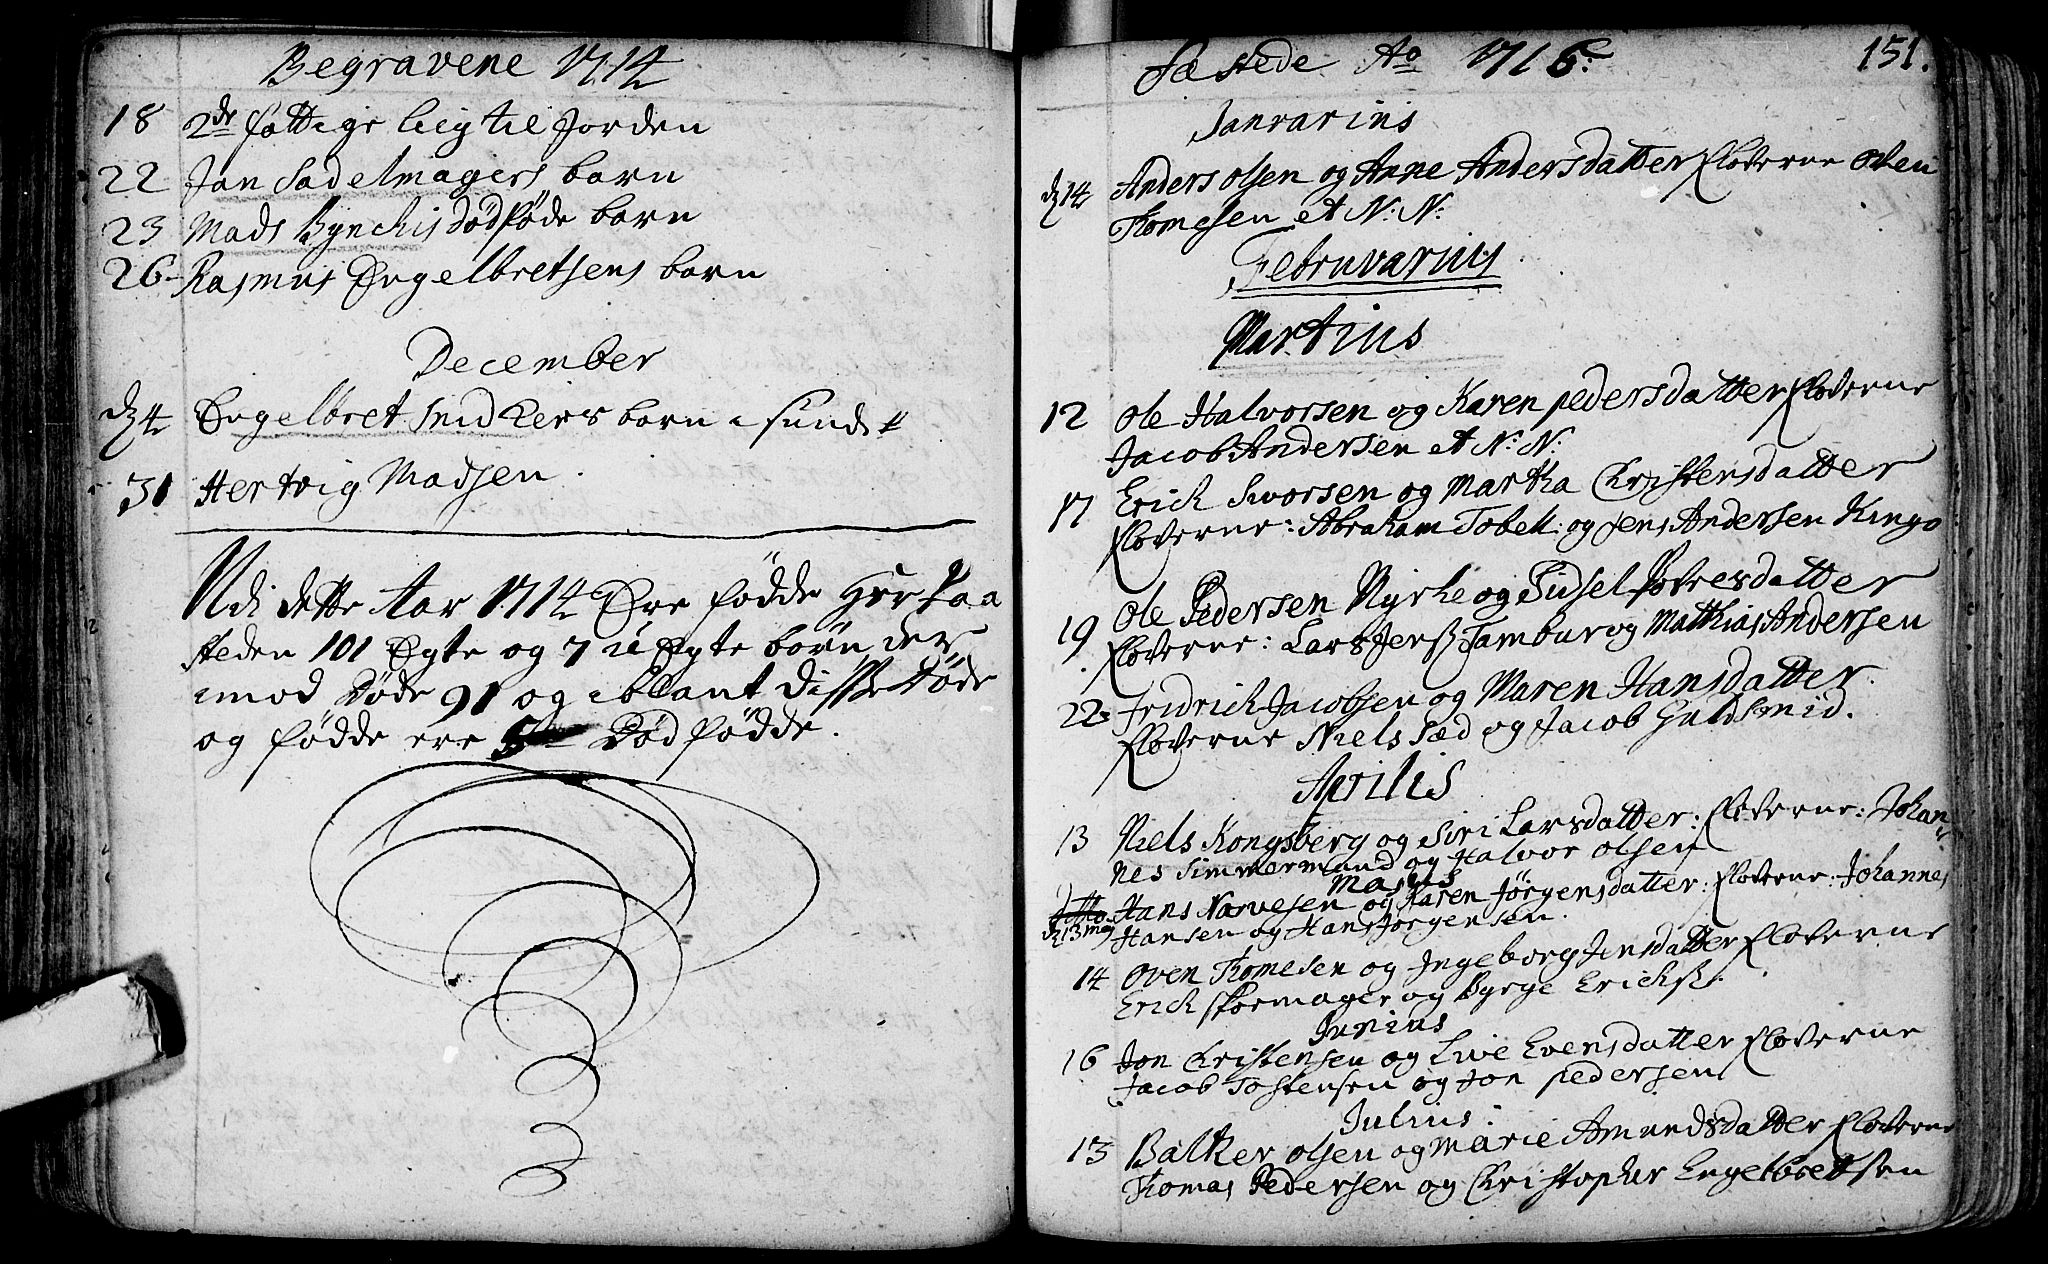 Begravene 1714
18 2de fattige liig til Jorden
22 Jan Sadelmagers barn
23 Mads Bynckis dødføde barn
26 Rasmus Engelbretsens barn
December
d 4 Engelbret Snidkers barn i sundet
31 Hertvig Madsen.
Udi dette Aar 1714 Ere fødde Her paa
steden 101 Ægte og 7 uÆgte børn der
imod Døde 91 og iblant disse Døde
og fødde ere Død fødde.
151.
Fæstede Ao 1716:
Janvarius
d 14 Anders Olsen og Anne Andersdatter Floverne Oven
Thomesen et N: N:
Februvarius
Martius
12 Ole Halvorsen og Karen Pedersdatter Floverne
Jacob Andersen et N: N:
17 Erick Iworsen og Martha Christensdatter
Floverne: Abraham Tobell: og Jens Andersen Kingo
19 Ole Pedersen Nyrke og Sidsel Povelsdatter
Floverne: Lars Jenss Tambur og Matthias Andersen
22 Fridrich Jacobsen og Maren Hansdatter.
Floverne Niels Sæd og Jacob Guldsmid.
Aprilis
13 Niels Kongsberg og Siri Larsdatter: Floverne: Johan-
nes Timmermand og Halvor Olsen
Majus
ditto Hans Narvesen og Karen Jørgensdatter: Floverne: Johannes
d 13 maj Hansen og Hans Jørgensen.
14 Oven Thomesen og Ingeborg Jensdatter Floverne
Erich Skoemager og Byrge Ericks:
Junius
16 Jon Christensen og Live Evensdatter Floverne
Jacob Tostensen og Jon Pedersen
Julius:
13 Balzer Olsen og Marie Amundsdatter Floverne
Thomas Pedersen og Christopher Engelbretsen